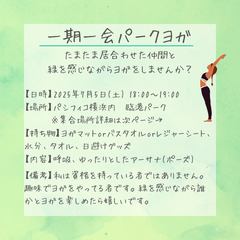 一期一会パークヨガ
たまたま居合わせた仲間と
緑を感じながらヨガをしませんか？
【日時】2025年7月5日(土) 18:00〜19:00
【場所】パシフィコ横浜内　臨港パーク
※集合場所詳細は次ページ→
【持ち物】ヨガマットorバスタオルorレジャーシート、
水分、タオル、日避けグッズ
【内容】呼吸、ゆったりとしたアーサナ(ポーズ)
【備考】私は資格を持っている者ではありません。
趣味でヨガをやってる者です。緑を感じながら誰
かとヨガを楽しめたら嬉しいです。